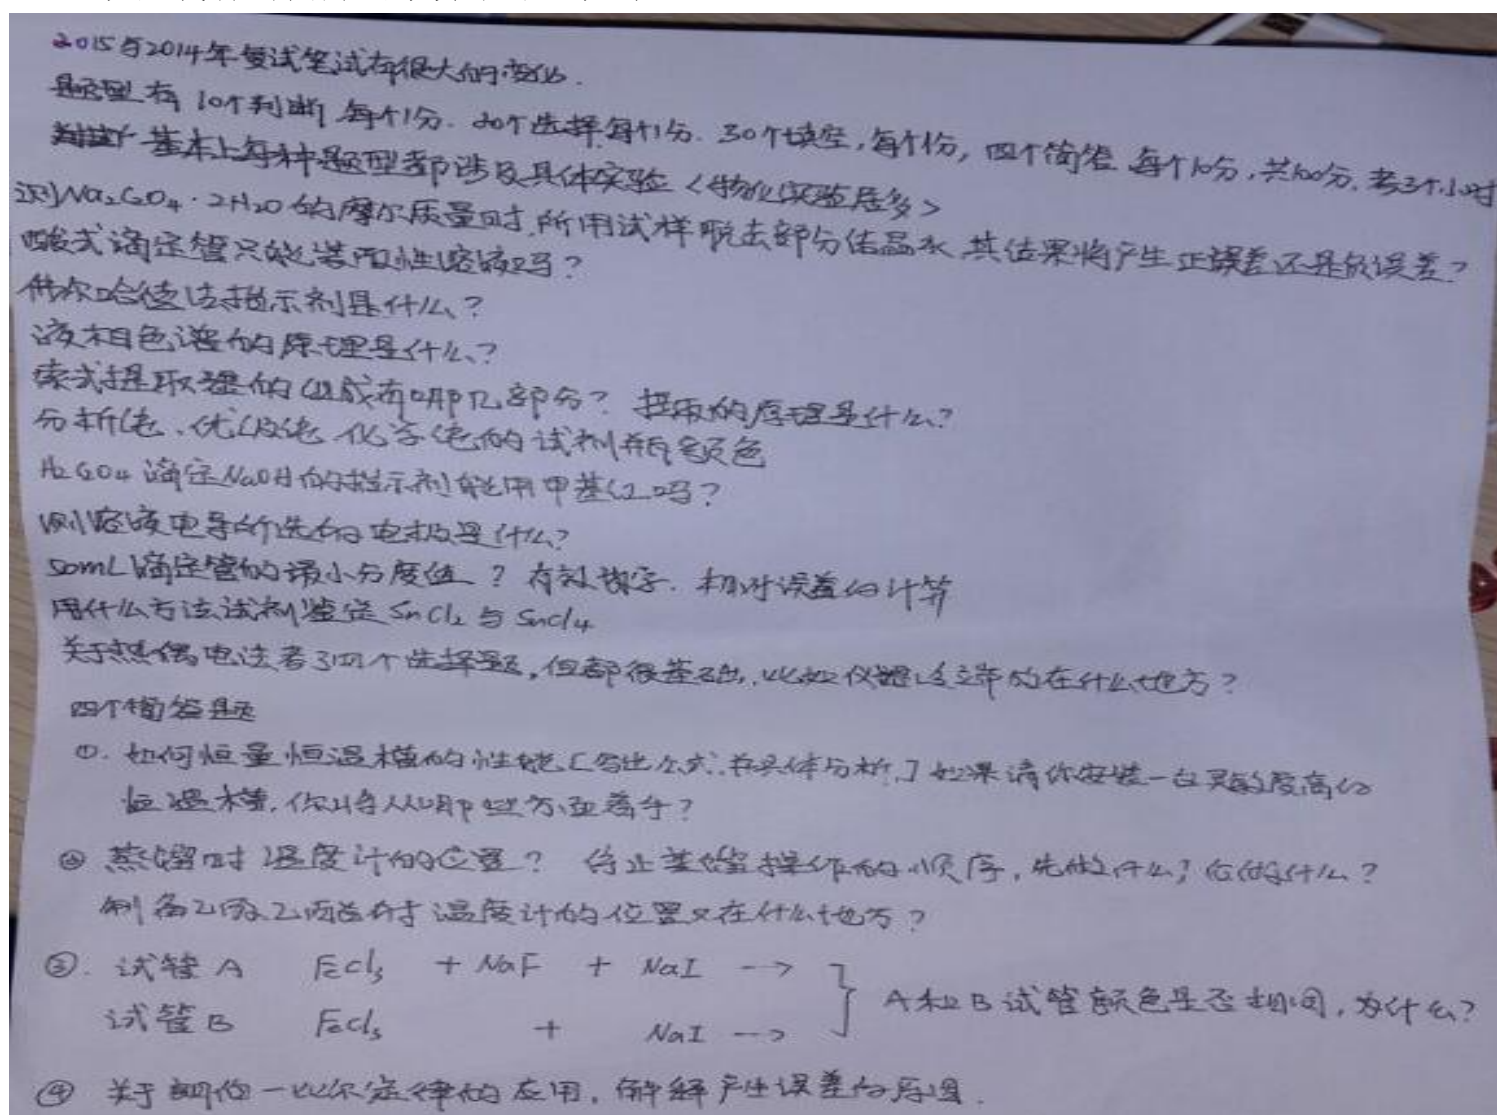 2015与2014年复试笔试有很大的变化.
题型有 10个判断 每个1分. 20个选择每个1分. 30个填空,每个1分, 四个简答 每个10分,共100分. 考3个小时
基本上每种题型都涉及具体实验<物化实验居多>
测Na₂C₂O₄·2H₂O的摩尔质量时,所用试样脱去部分结晶水,其结果将产生正误差还是负误差?
酸式滴定管只能装酸性溶液吗?
佛尔哈德法指示剂是什么?
液相色谱的原理是什么?
索式提取器的组成有哪几部分? 提取的原理是什么?
分析纯、优级纯、化学纯的试剂瓶颜色
H₂C₂O₄滴定NaOH的指示剂能用甲基红吗?
测溶液电导所选的电极是什么?
50mL滴定管的最小分度值? 有效数字. 相对误差的计算
用什么方法试剂鉴定SnCl₂与SnCl₄
关于热偶电法考了四个选择题,但都很基础,比如仪器选择的在什么地方?
四个简答题
①. 如何恒量恒温槽的性能[写出公式,并具体分析.]如果请你安装一台灵敏度高的
恒温槽,你将从哪些方面着手?
② 蒸馏时温度计的位置? 停止蒸馏操作的顺序,先做什么;后做什么?
制备乙酸乙酯时温度计的位置又在什么地方?
③. 试管A FeCl₃ + NaF + NaI -->
试管B FeCl₃ + NaI --> } A和B试管颜色是否相同,为什么?
④ 关于朗伯-比尔定律的应用,解释产生误差的原因.